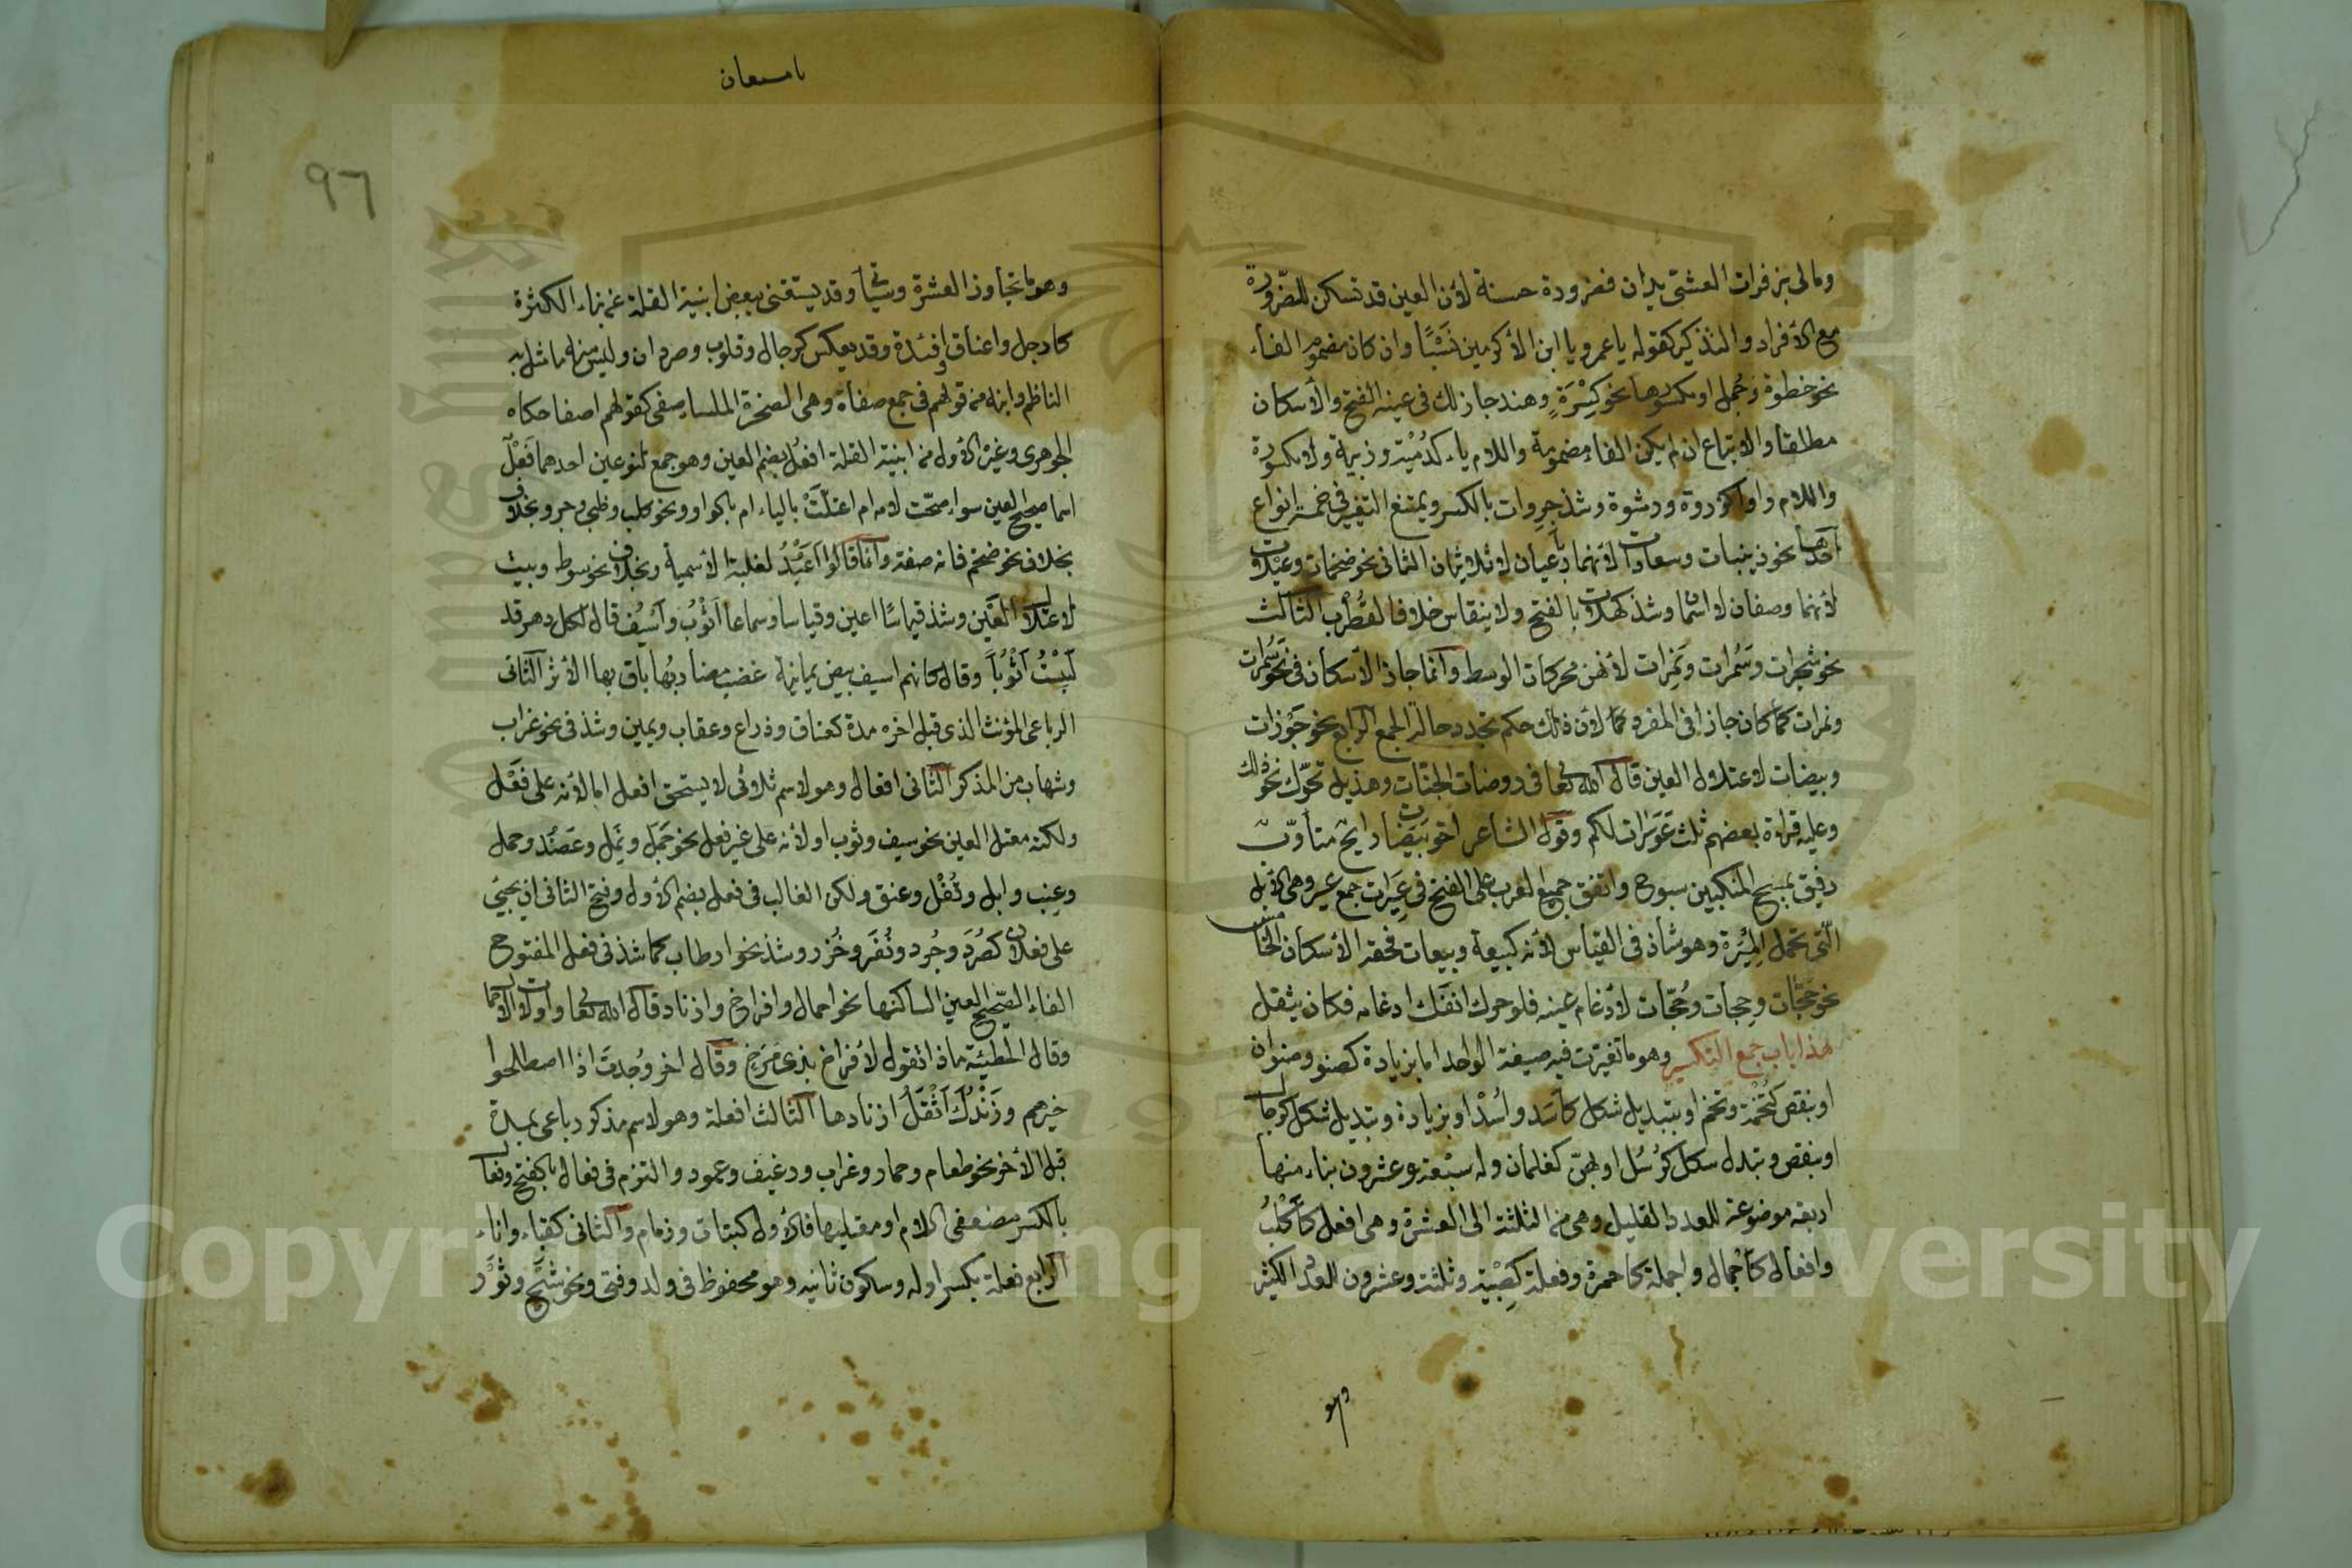 ومالى بزفرات العشتى يدان فضرورة حسنة لأن العين قد تسكن للضرورة
مع الأفراد والتذكير كقوله يا عمرو يا ابن الأكرمين نَسْبًا وان كان مضموم الفاء
نحو خطوة وجُمل او مكسورها نحو كِسْرَةٍ وهند جاز لك فى عينه الفتح والأسكان
مطلقا والاتباع ان لم يكن الفاء مضمومة واللام ياء كدُمْية وزبية ولا مكسورة
واللام واوا كذروة ورشوة وشذ جِرِوات بالكسر ويمتنع التغيير فى خمسة انواع
احدها نحو زينبات وسعادات لأنهما رباعيان لا ثلاثيان الثانى نحو ضخمات وعبلات
لأنهما وصفان لا اسمان وشذ كهلات بالفتح ولا ينقاس خلافا لقُطْرب الثالث
نحو شجرات وسَمُرات ونَمِرات لأنهن محركات الوسط وانما جاز الأسكان فى نحو سَمُرات
ونمرات كما كان جازا فى المفرد كما لأن ذلك حكم تجدد حالة الجمع الرابع نحو جَوْزات
وبيضات لاعتلال العين قال الله تعا فى روضات الجنّات وهذيل تحرّك نحو ذلك
وعليه قراءة بعضهم ثلث عَوَرات لكم وقول الشاعر اخو بَيَضات رايح متأوّب
رفيق بمسح المنكبين سبوح واتفق جميع العرب على الفتح فى عِيَرات جمع عير وهى الأبل
الّتى تحمل المِيْرة وهو شاذ فى القياس لأنه كبيعة وبيعات فحقه الأسكان الخامس
نحو حَجّات وحِجات وحُجّات لأدغام عينه فلو حرك انفكّ ادغامه فكان يثقل
هذا باب جمع التكسير وهو ما تغيّرت فيه صيغة الواحد اما بزيادة كصنو وصنوان
او بنقص كَتُخْمَة وتخم او بتبديل شكل كأسَد واُسْد او بزيادة وتبديل شكل كرجال
او بنقص وتبدل شكل كرُسُل او بهنّ كغلمان وله سبْعة وعشرون بناء منها
اربعة موضوعة للعدد القليل وهى من الثلثة الى العشرة وهى افعل كأَكْلُب
وافعال كأجمال و افعلة كاحمرة وفعلة كصِبْية وثلثة وعشرون للعدد الكثير
وهو
٩٦
وهو ما تجاوز العشرة وسيأتى وقد يستغنى ببعض ابنية القلة عن بناء الكثرة
كارجل واعناق وافئدة وقد يعكس كرجال وقلوب وصردان وليس منه ما مثل به
الناظم وابنه من قولهم فى جمع صفاة وهى الصخرة الملساء صفى كقولهم اصفا حكاه
الجوهرى وغيره الأول من ابنية القلة افعُل بضم العين وهو جمع لنوعين احدهما فَعْل
اسما صحيح العين سواء صحّت لامه ام اعتلّتْ بالياء ام بالواو ونحو كلب وظبى وجرو بخلاف
بخلاف نحو ضخم فانه صفة وانما قالوا اَعبُدُ لغلبة الأسمية وبخلاف نحو سوط وبيت
لاعتلال العَيْن وشذ قياسًا اعين وقياسا وسماعا اَثْوُب واَسْيُف قال لكل دهر قد
لَبِسْتُ اَثْوُبًا وقال كانهم اسيف بيض يمانية غضب مضاربُها باق بها الأثر الثانى
الرباعى المؤنث الذى قبل اخره مدة كعناق وذراع وعقاب ويمين وشذ فى نحو غراب
وشهاب من المذكر الثانى افعال وهو لاسم ثلاثى لا يستحق افعل اما لأنه على فَعْل
ولكنه معتل العين نحو سيف وثوب او لأنه على غير فعل نحو جَمَل ونَمِل وعَضُد وحمل
وعِنب وابل وقُفْل وعنق ولكن الغالب فى فعل بضم الأول وفتح الثانى ان يجئ
على فعلان كصُرَد وجُرد ونُغَر وخُزر وشذ نحو ارطاب كما شذ فى فعل المفتوح
الفاء الصّحيح العين الساكنها نحو احمال وافراخ وازناد قال الله تعا واولات الأحمال
وقال الحطيئة ماذا تقول لأفراخ بذى مَرَخ وقال اخر وُجِدتَ اذا اصطلحوا
خيرهم وزَنْدُك اَثْقَلُ ازنادها الثالث افعلة وهو لاسم مذكر رباعى بمدة
قبل الأخر نحو طعام وحمار وغراب ورغيف وعمود والتزم فى فعال بالفتح وفعال
بالكسر مضعفى اللام او معتليها فالأول كبتات وزمام والثانى كقباء واناء
الرابع فعلة بكسر اوله وسكون ثانيه وهو محفوظ فى ولد وفتى ونحو شيْخ وثَوْر
Copyright © King Saud University